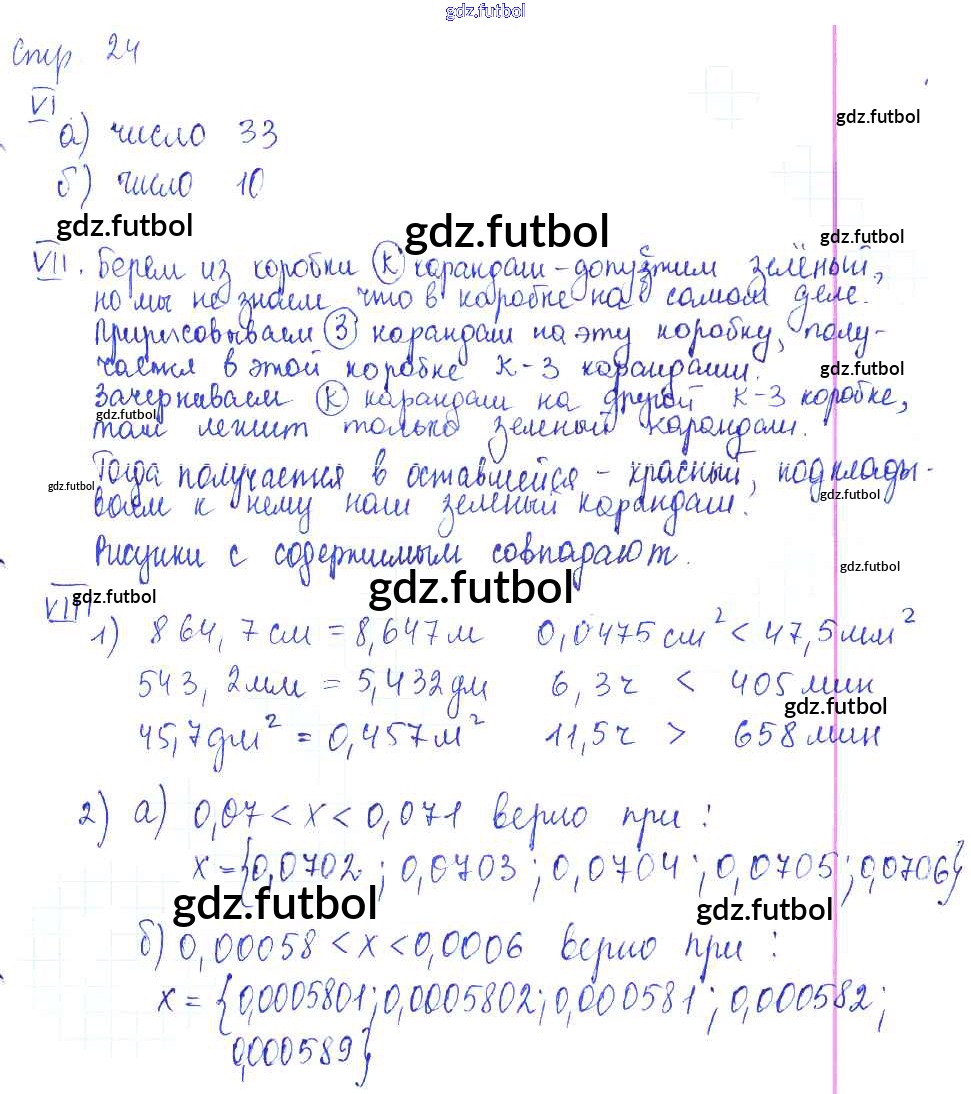 gdz.futbol
Стр 24
VI
а) число 33
gdz.futbol
б) число 10
gdz.futbol
gdz.futbol
gdz.futbol
VII. Берем из коробки К карандаш - допустим зелёный,
но мы не знаем что в коробке на самом деле.
Пририсовываем З карандаш на эту коробку, полу-
чается в этой коробке К-З карандаши.
gdz.futbol
Зачеркиваем К карандаш на другой К-З коробке,
gdz.futbol
там лежит только зеленый карандаш.
Тогда получается в оставшейся - красный, подклады-
gdz.futbol
gdz.futbol
ваем к нему наш зеленый карандаш.
Рисунки с содержимым совпадают.
gdz.futbol
gdz.futbol
gdz.futbol
VIII
1) 864,7см = 8,647м 0,0475см² < 47,5мм²
543,2мм = 5,432дм 6,3ч < 405мин
gdz.futbol
45,7дм² = 0,457м² 11,5ч > 658мин
2) а) 0,07 < х < 0,071 верно при:
х = {0,0702; 0,0703; 0,0704; 0,0705; 0,0706}
gdz.futbol
gdz.futbol
б) 0,00058 < х < 0,0006 верно при:
х = {0,0005801; 0,0005802; 0,000581; 0,000582;
0,000589}